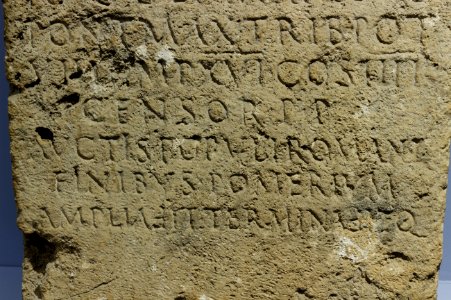 PONT MAX TRIB POT
VIIII IMP XVI COS IIII
CENSOR P P
AVCTIS POPVLI ROMANI
FINIBVS POMERIVM
AMPLIAℲIT TERMINAℲITQ